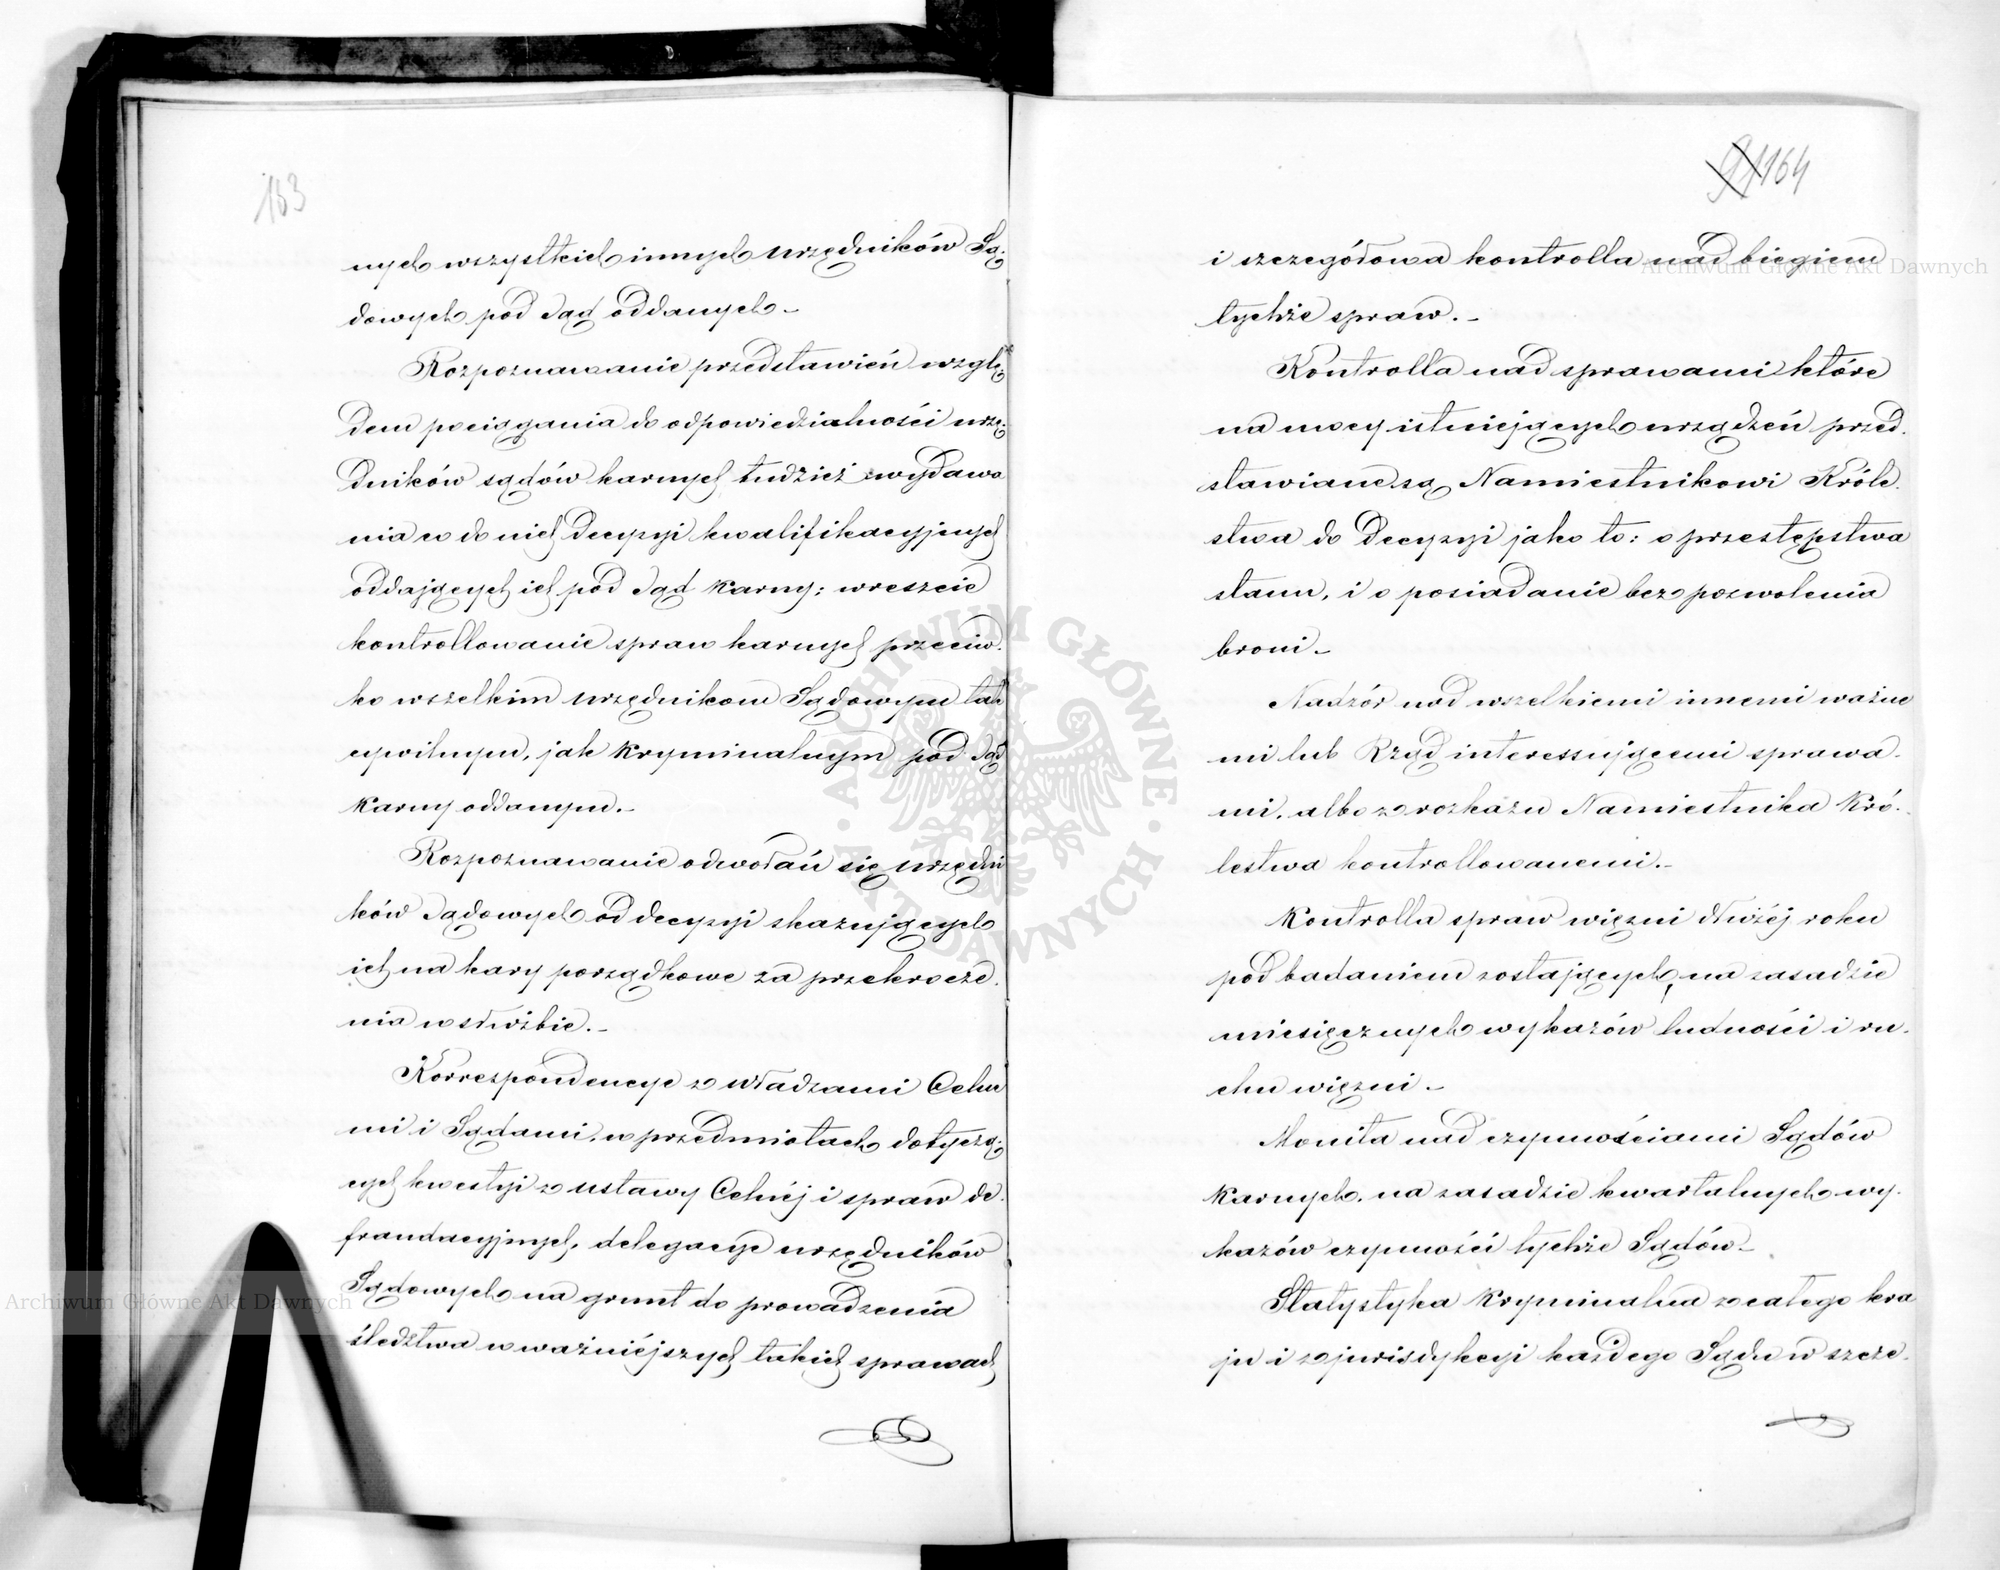 163
nych wszystkich innych urzędników Są-
dowych pod Sąd oddanych. –
Rozpoznawanie przedstawień wzglę-
dem pociągania do odpowiedzialności urzę-
dników sądów karnych tudzież wydawa
nia co do nich decyzyi kwalifikacyjnych
oddających ich pod Sąd karny; wreszcie
kontrollowanie spraw karnych przeciw-
ko wszelkim urzędnikom Sądowym tak
cywilnym, jak kryminalnym pod Sąd
karny oddanym. –
Rozpoznawanie odwołań się urzędni
ków Sądowych od decyzyi skazujących
ich na kary porządkowe za przekrocze-
nia w służbie. –
Korrespondencye z władzami Celne
mi i Sądami, w przedmiotach dotyczą-
cych kwestyi z ustawy Celnéj i spraw de-
fraudacyjnych, delegacye urzędników
Sądowych na grunt do prowadzenia
śledztwa w ważniéjszych takich sprawach
91 164
i szczegółowa kontrolla nad biegiem
tychże spraw. –
Kontrolla nad sprawami które
na mocy istniejących urządzeń przed-
stawiane są Namiestnikowi Króle-
stwa do decyzyi jako to: o przestępstwa
stanu, i o posiadanie bez pozwolenia
broni –
Nadzór nad wszelkiemi innemi ważne
mi lub Rząd interessującemi sprawa-
mi, albo z rozkazu Namiestnika Kró-
lestwa kontrollowanemi. –
Kontrolla spraw więzni dłużéj roku
pod badaniem zostających, na zasadzie
miesięcznych wykazów ludności i ru-
chu więzni –
Monita nad czynnościami Sądów
karnych, na zasadzie kwartalnych wy-
kazów czynności tychże Sądów –
Statystyka kryminalna z całego kra
ju i z jurisdykcyi każdego Sądu w szcze-
Archiwum Główne Akt Dawnych
Archiwum Główne Akt Dawnych
· ARCHIWUM GŁÓWNE ·
AKT DAWNYCH